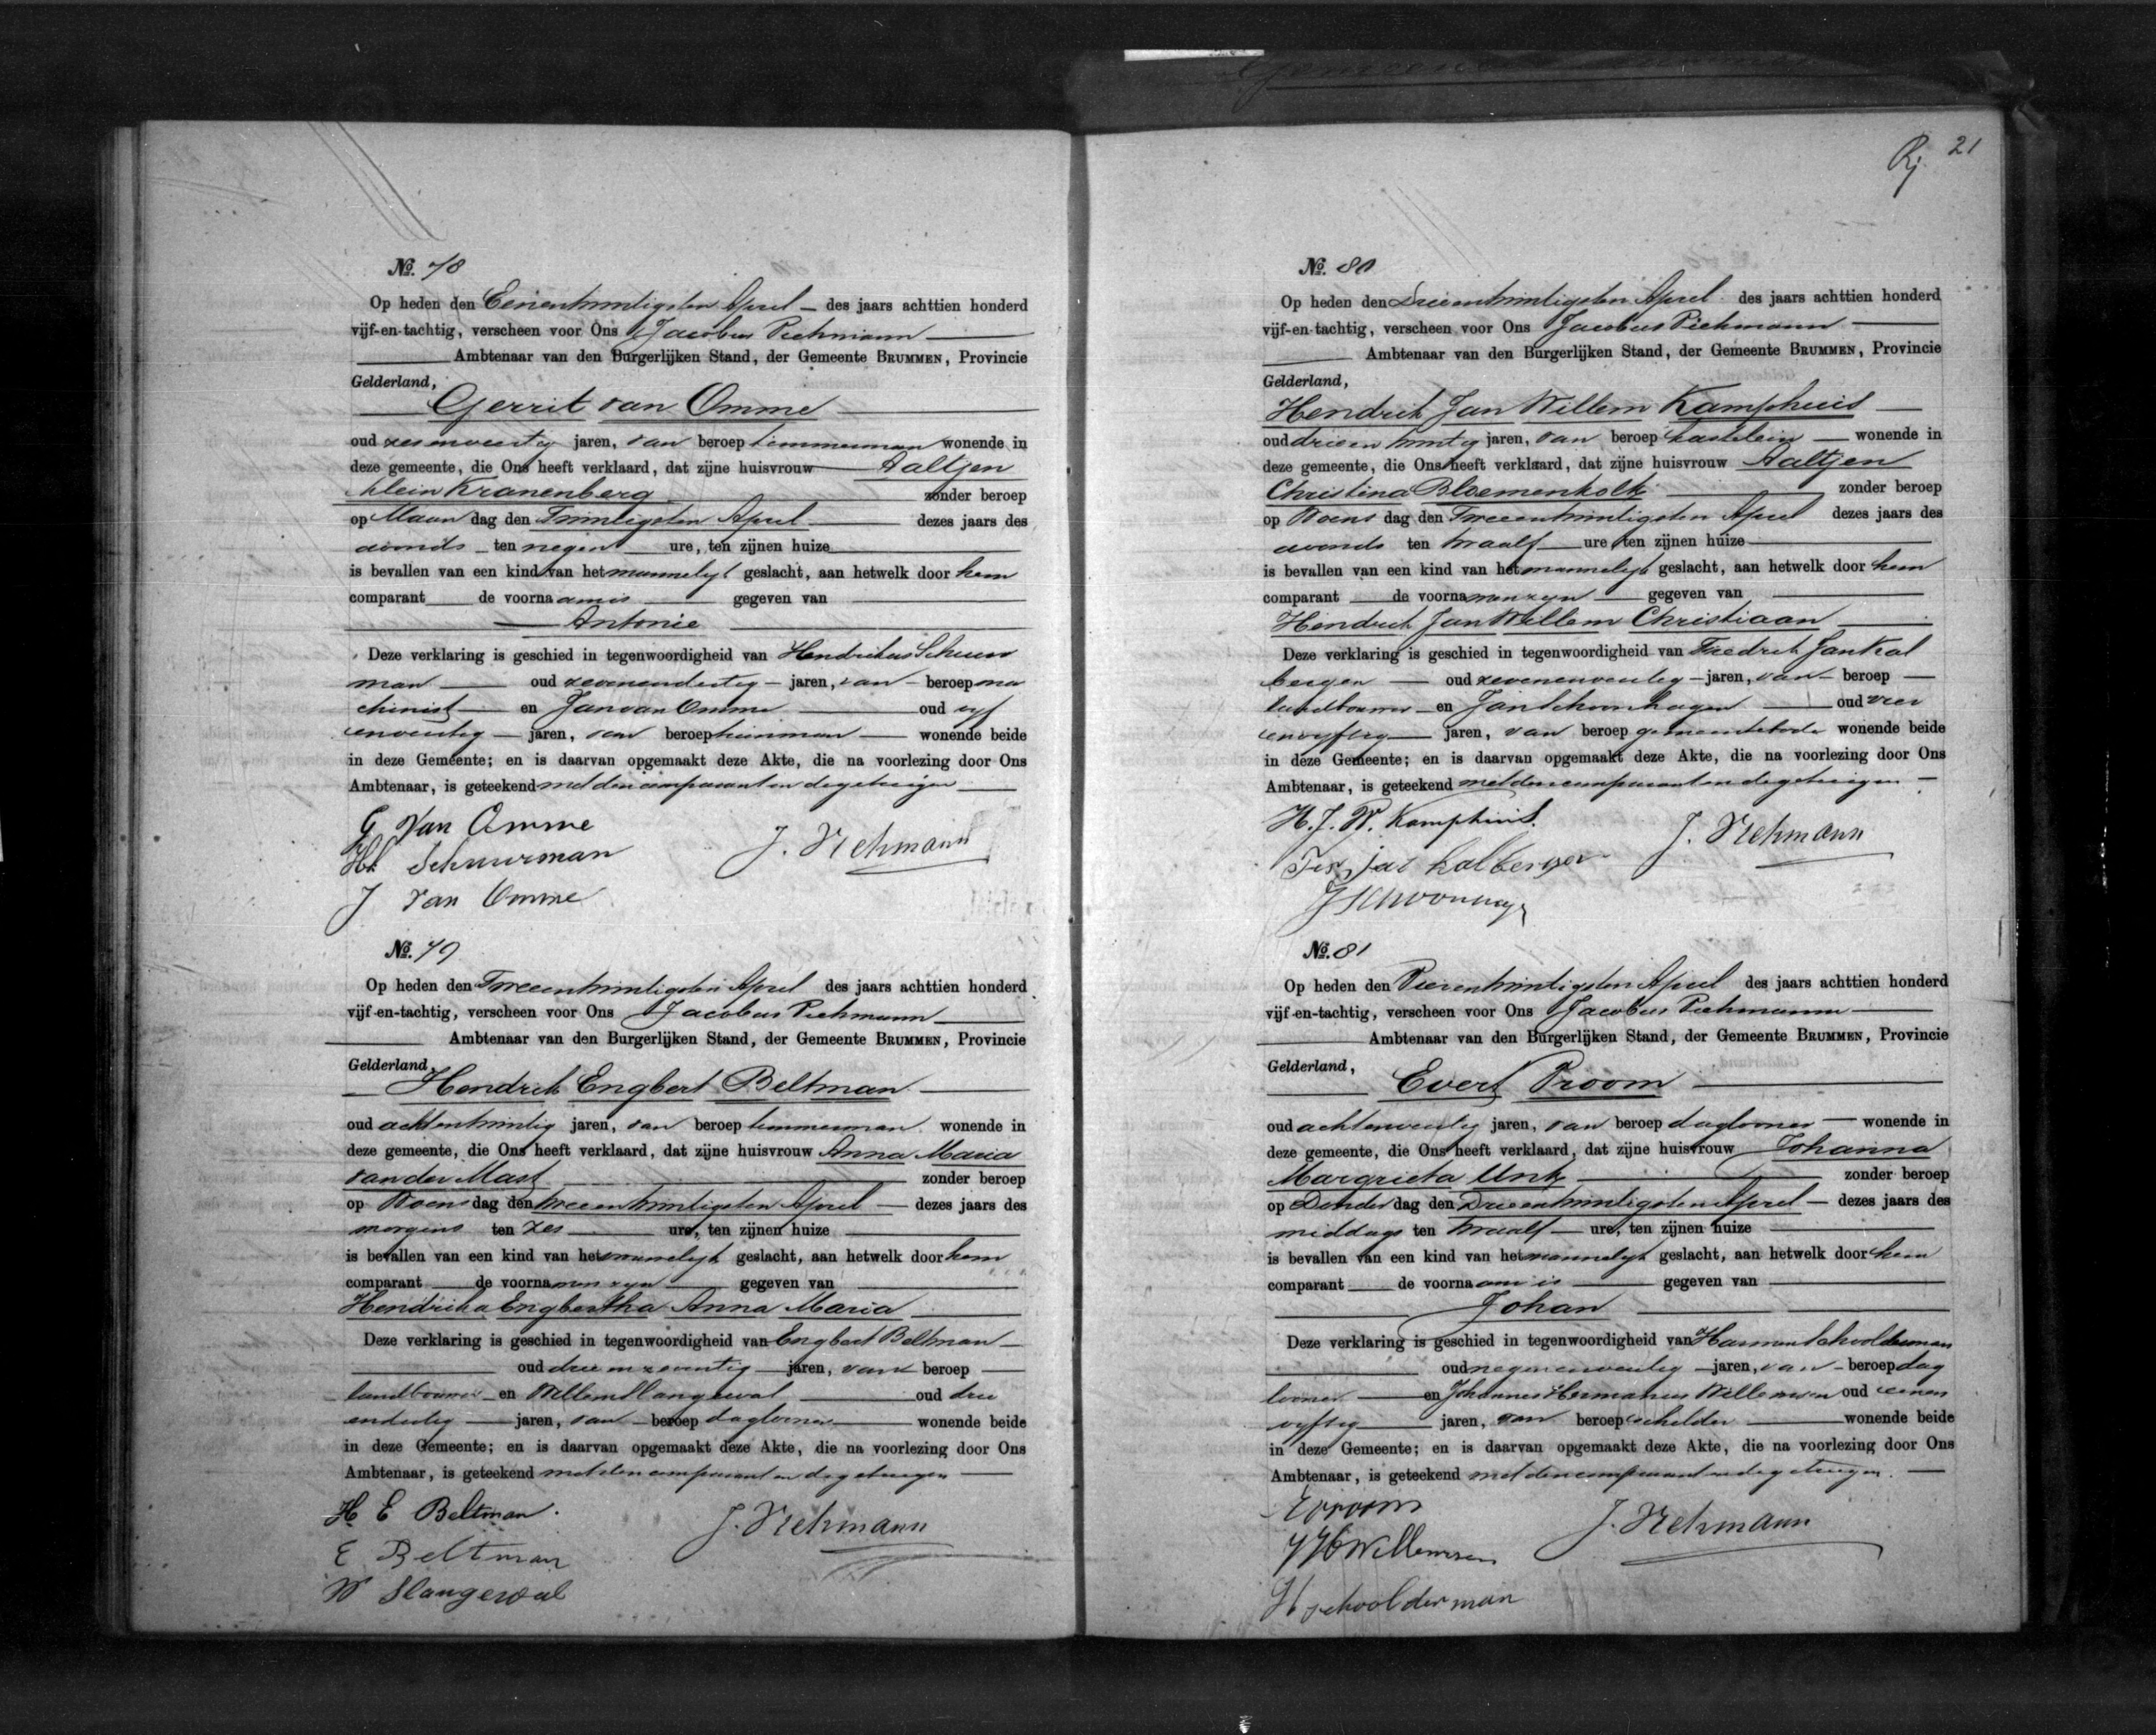 21
Rj
№. 78
Op heden den Eenentwintigsten April des jaars achttien honderd
vijf-en-tachtig, verscheen voor Ons Jacobus Piekmann
Ambtenaar van den Burgerlijken Stand, der Gemeente BRUMMEN, Provincie
Gelderland,
Gerrit van Omme
oud zesenveertig jaren, van beroep timmerman wonende in
deze gemeente, die Ons heeft verklaard, dat zijne huisvrouw Aaltjen
Klein Kranenberg zonder beroep
op Maandag den Twintigsten April dezes jaars des
avonds ten negen ure, ten zijnen huize
is bevallen van een kind van het mannelijk geslacht, aan hetwelk door hem
comparant de voornaam is gegeven van
Antonie
Deze verklaring is geschied in tegenwoordigheid van Hendrikus Schuur
man oud zevenendertig jaren, van beroep ma
chinist en Jan van Omme oud vyf
enveertig jaren, van beroep tuinman wonende beide
in deze Gemeente; en is daarvan opgemaakt deze Akte, die na voorlezing door Ons
Ambtenaar, is geteekend met den comparant en de getuigen
G van Omme
Hk Schuurman
J. Piekmann
J van Omme
№. 79
Op heden den Tweeentwintigsten April des jaars achttien honderd
vijf-en-tachtig, verscheen voor Ons Jacobus Piekmann
Ambtenaar van den Burgerlijken Stand, der Gemeente BRUMMEN, Provincie
Gelderland,
Hendrik Engbert Beltman
oud achtentwintig jaren, van beroep timmerman wonende in
deze gemeente, die Ons heeft verklaard, dat zijne huisvrouw Anna Maria
van der Mast zonder beroep
op Woensdag den tweeentwintigsten April dezes jaars des
morgens ten zes ure, ten zijnen huize
is bevallen van een kind van het mannelijk geslacht, aan hetwelk door hem
comparant de voornamen zyn gegeven van
Hendrika Engbertha Anna Maria
Deze verklaring is geschied in tegenwoordigheid van Engbert Beltman
oud drieenzeventig jaren, van beroep
landbouwer en Willem Slangewal oud drie
endertig jaren, van beroep daglooner wonende beide
in deze Gemeente; en is daarvan opgemaakt deze Akte, die na voorlezing door Ons
Ambtenaar, is geteekend met den comparant en de getuigen
H E Beltman
J. Piekmann
E Beltman
W Slangewal
№. 80
Op heden den Drieentwintigsten April des jaars achttien honderd
vijf-en-tachtig, verscheen voor Ons Jacobus Piekmann
Ambtenaar van den Burgerlijken Stand, der Gemeente BRUMMEN, Provincie
Gelderland,
Hendrik Jan Willem Kamphuis
oud drieentwintig jaren, van beroep kastelein wonende in
deze gemeente, die Ons heeft verklaard, dat zijne huisvrouw Aaltjen
Christina Bloemenkolk zonder beroep
op Woensdag den Tweeentwintigsten April dezes jaars des
avonds ten twaalf ure ten zijnen huize
is bevallen van een kind van het mannelijk geslacht, aan hetwelk door hem
comparant de voornamen zyn gegeven van
Hendrik Jan Willem Christiaan
Deze verklaring is geschied in tegenwoordigheid van Fredrik Jan Kal
bergen oud zevenenveertig jaren, van beroep
landbouwer en Jan Schoonhagen oud vier
envyftig jaren, van beroep gemeentebode wonende beide
in deze Gemeente; en is daarvan opgemaakt deze Akte, die na voorlezing door Ons
Ambtenaar, is geteekend met den comparant en de getuigen
H. J. W. Kamphuis.
J. Piekmann
Jan kalbergen
№. 81
Op heden den Vierentwintigsten April des jaars achttien honderd
vijf-en-tachtig, verscheen voor Ons Jacobus Piekmann
Ambtenaar van den Burgerlijken Stand, der Gemeente BRUMMEN, Provincie
Gelderland,
Evert Proom
oud achtenveertig jaren, van beroep daglooner wonende in
deze gemeente, die Ons heeft verklaard, dat zijne huisvrouw Johanna
Margrieta Unk zonder beroep
op Donderdag den Drieentwintigsten April dezes jaars des
middags ten twaalf ure, ten zijnen huize
is bevallen van een kind van het mannelijk geslacht, aan hetwelk door hem
comparant de voornaam is gegeven van
Johan
Deze verklaring is geschied in tegenwoordigheid van Harmen Schoolderman
oud negenenveertig jaren, van beroep dag
looner en Johannes Hermanus Willemsen oud eenen
vyftig jaren, van beroep schilder wonende beide
in deze Gemeente; en is daarvan opgemaakt deze Akte, die na voorlezing door Ons
Ambtenaar, is geteekend met den comparant en de getuigen.
E Proom
J. Piekmann
J H Willemsen
H schoolderman